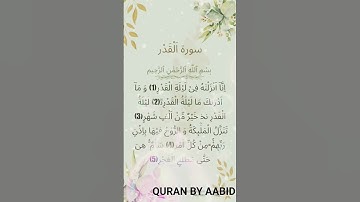 سورة اَلْقَدْر
بِسْمِ اللّٰهِ الرَّحْمٰنِ الرَّحِيْمِ
اِنَّاۤ اَنْزَلْنٰهُ فِیْ لَیْلَةِ الْقَدْرِ(1) وَ مَاۤ
اَدْرٰىكَ مَا لَیْلَةُ الْقَدْرِ(2) لَیْلَةُ
الْقَدْرِ خَیْرٌ مِّنْ اَلْفِ شَهْرٍ(3)
تَنَزَّلُ الْمَلٰٓىٕكَةُ وَ الرُّوْحُ فِیْهَا بِاِذْنِ
رَبِّهِمْ مِنْ كُلِّ اَمْرٍ(4) هِیَ
حَتّٰى مَطْلَعِ الْفَجْرِ(5)
QURAN BY AABID